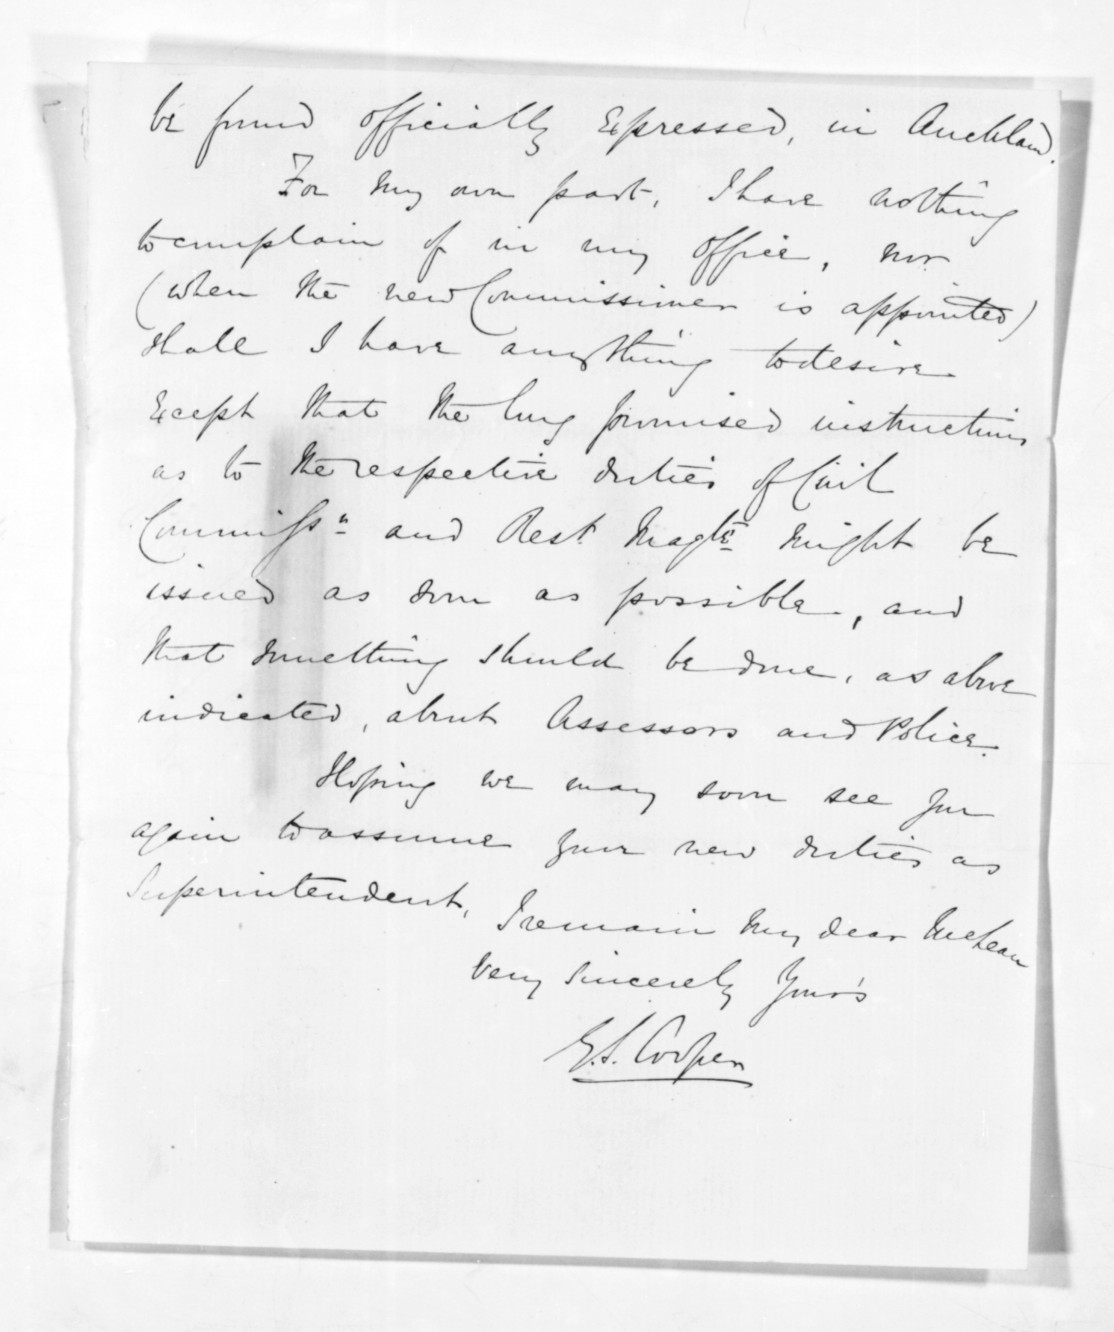 be found officially expressed, in Auckland.
For my own part, I have nothing
to complain of in my office, nor
(when the new Commissioner is appointed)
shall I have anything to desire
except that the long promised instructions
as to the respective duties of Civil
Commissr. and Rest. Magte. might be
issued as soon as possible, and
that something should be done, as above
indicated, about Assessors and Police.
Hoping we may soon see you
again to assume your new duties as
Superintendent,
I remain My dear McLean
Very Sincerely Your's
G.S. Cooper